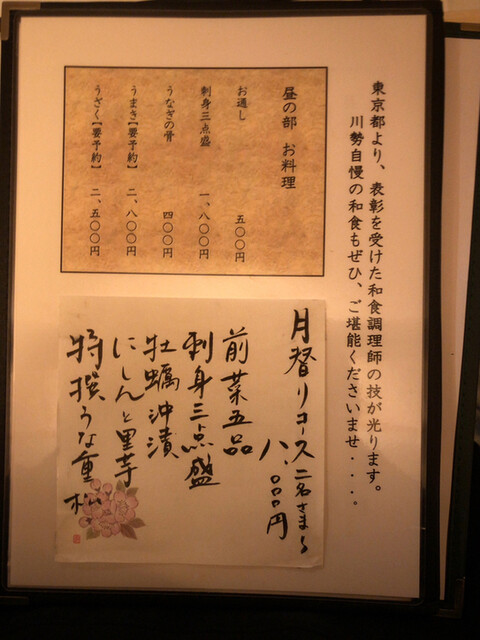 東京都より、表彰を受けた和食調理師の技が光ります。
川勢自慢の和食もぜひ、ご堪能くださいませ・・・・。
昼の部 お料理
お通し 五〇〇円
刺身三点盛 一、八〇〇円
うなぎの骨 四〇〇円
うまき【要予約】 二、八〇〇円
うざく【要予約】 二、五〇〇円
月替りコース 二名さま〜
八、〇〇〇円
前菜五品
刺身三点盛
牡蠣沖漬
にしんと里芋
特撰うな重 松